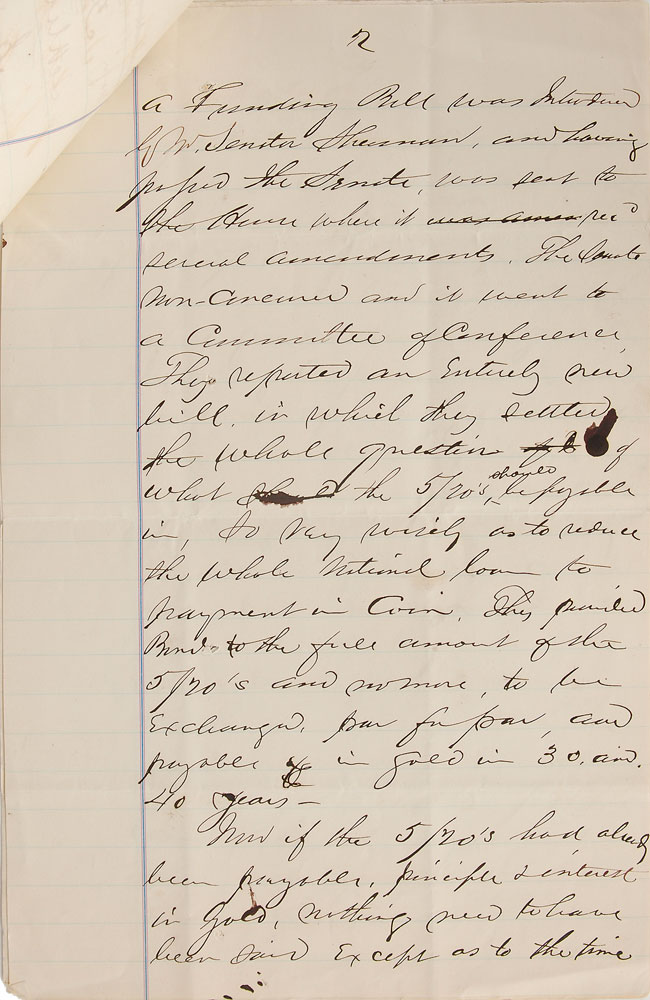 2
a Funding Bill was Introduced
by Mr. Senator Sherman, and having
passed the Senate, was sent to
the House where it was amen rec'd
several amendments. The Senate
non-concurred and it went to
a Committee of Conference,
They reported an Entirely new
bill, in which they settled
the whole question of
what the 5/20's, should be payable
in, so very wisely as to reduce
the whole National loan to
payment in Coin. They provided
Bonds to the full amount of the
5/20's and no more, to be
Exchanged, par for par, and
payable in gold in 30. and.
40 years –
Now if the 5/20's had already
been payable, principle & interest
in Gold, nothing need to have
been said Except as to the time